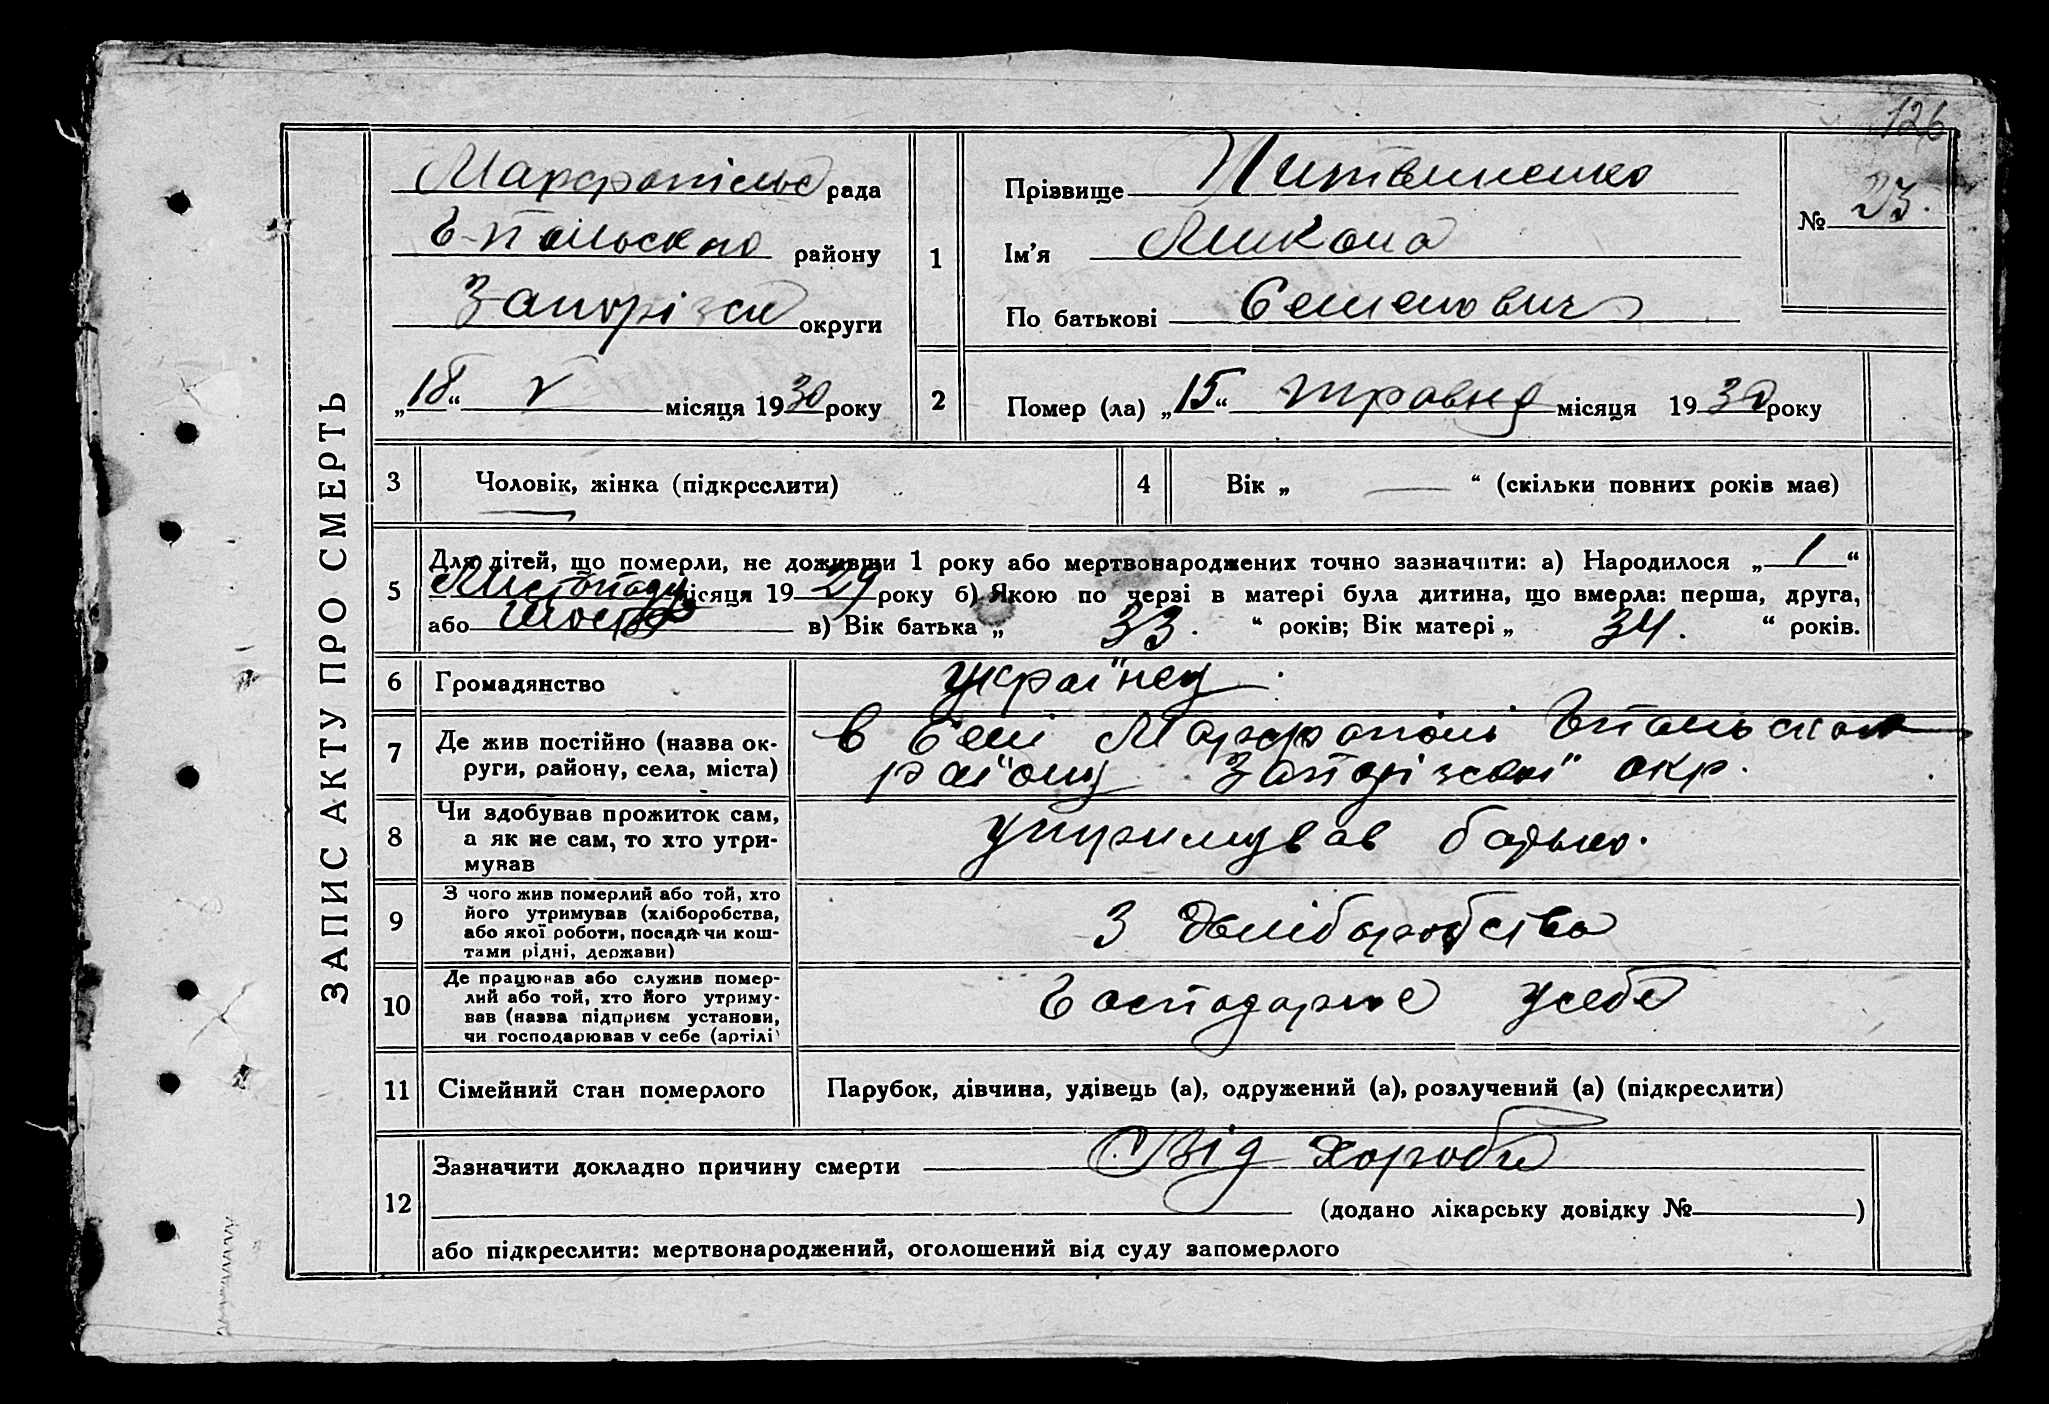 126
ЗАПИС АКТУ ПРО СМЕРТЬ
Марфопільс рада
Г-Польского району
Запорізсп округи
„18“ V місяця 1930 року
1
Прізвище Литвиненко
Ім'я Микола
По батькові Семенович
№ 23.
2
Помер (ла) „15“ травня місяця 1930 року
3 Чоловік, жінка (підкреслити)
4 Вік „ — “ (скільки повних років має)
5
Для дітей, що померли, не доживши 1 року або мертвонароджених точно зазначити: а) Народилося „1“
Листопаду місяця 1929 року б) Якою по черзі в матері була дитина, що вмерла: перша, друга,
або шоста в) Вік батька „33.“ років; Вік матері „34.“ років.
6 Громадянство українец
7 Де жив постійно (назва округи, району, села, міста)
в селі Марфополі Гпольского
району Запорізскої окр.
8 Чи здобував прожиток сам,
а як не сам, то хто утри-
мував
утримував батько.
9 З чого жив померлий або той, хто
його утримував (хліборобства,
або якої роботи, посади чи кош-
тами рідні, держави)
З хліборобства
10 Де працював або служив помер-
лий або той, хто його утриму-
вав (назва підприєм установи,
чи господарював у себе (артілі)
Господарює усебе
11 Сімейний стан померлого Парубок, дівчина, удівець (а), одружений (а), розлучений (а) (підкреслити)
12
Зазначити докладно причину смерти Від хороби
(додано лікарську довідку № )
або підкреслити: мертвонароджений, оголошений від суду запомерлого